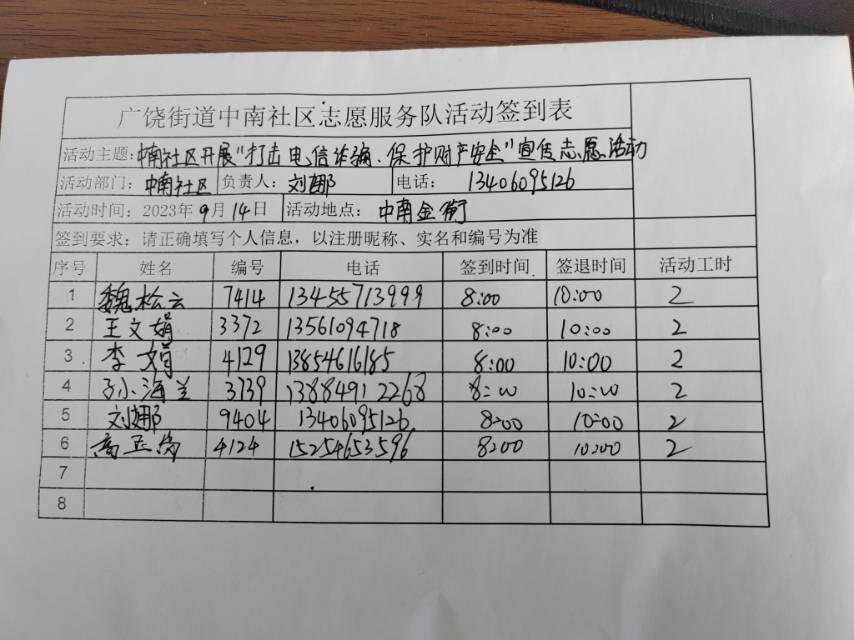 广饶街道中南社区志愿服务队活动签到表
活动主题:中南社区开展"打击电信诈骗、保护财产安全"宣传志愿活动
活动部门: 中南社区 负责人: 刘娜 电话: 13406095126
活动时间: 2023年 9月 14日 活动地点: 中南金街
签到要求: 请正确填写个人信息, 以注册昵称、实名和编号为准
序号 姓名 编号 电话 签到时间 签退时间 活动工时
1 魏松云 7414 13455713999 8:00 10:00 2
2 王文娟 3372 13561094718 8:00 10:00 2
3 李娟 4129 13854616185 8:00 10:00 2
4 孙海兰 3739 13884912268 8:00 10:00 2
5 刘娜 9404 13406095126 8:00 10:00 2
6 4124 15254653596 8:00 10:00 2
7
8